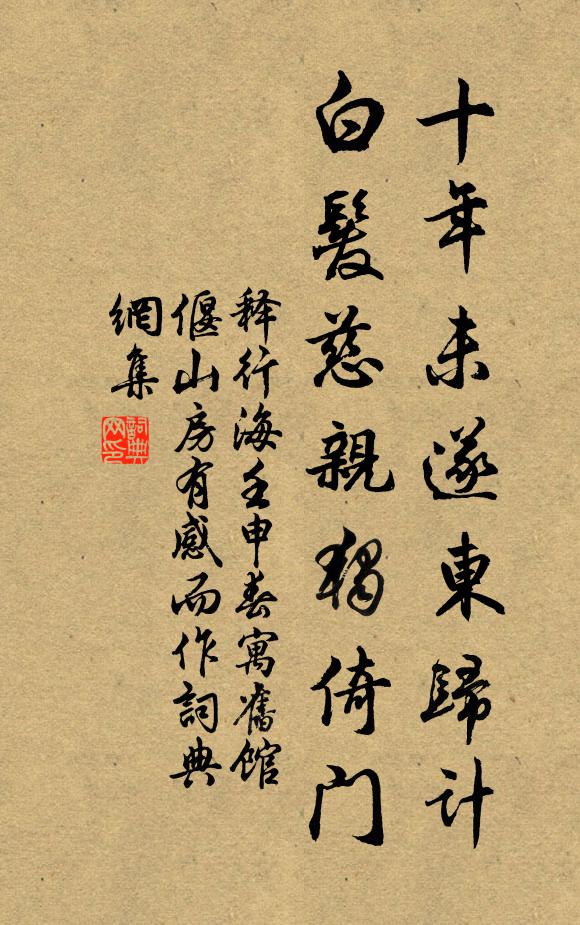 十年未遂東歸計
白髮慈親獨倚門
释行海壬申春寓舊館
偃山房有感而作詞典
網集
詞典
网印